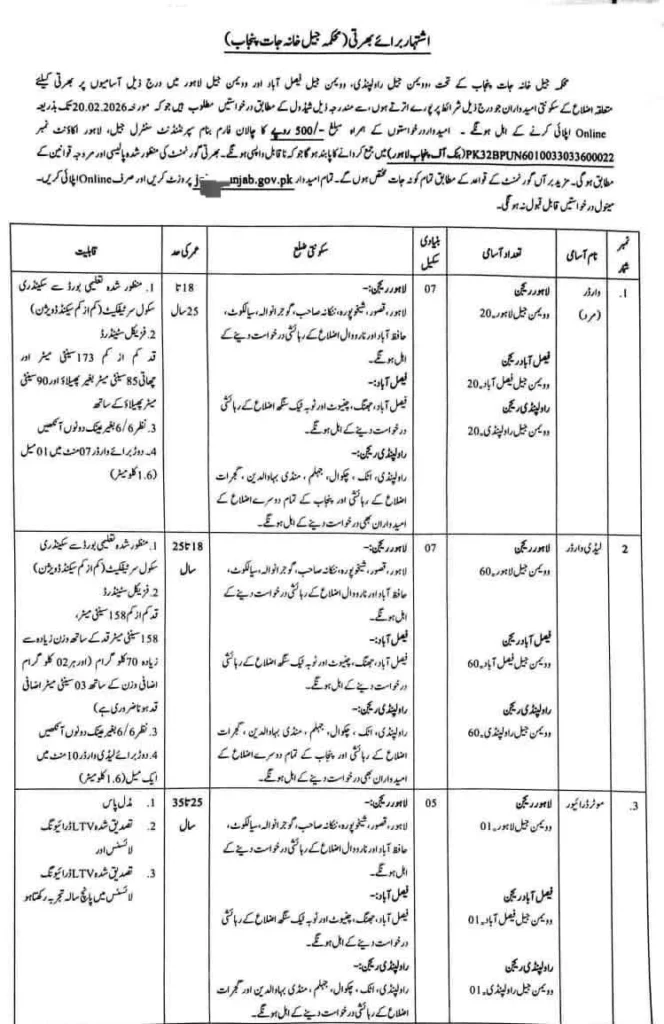 اشتہار برائے بھرتی (محکمہ جیل خانہ جات پنجاب)
محکمہ جیل خانہ جات پنجاب کے تحت، وویمن جیل راولپنڈی، وویمن جیل فیصل آباد اور وویمن جیل لاہور میں درج ذیل آسامیوں پر بھرتی کیلئے
متعلقہ اضلاع کے سکونتی امیدواران جو درج ذیل شرائط پر پورے اترتے ہوں، سے مندرجہ ذیل شیڈول کے مطابق درخواستیں مطلوب ہیں جو کہ مورخہ 20.02.2026 تک بذریعہ
Online اپلائی کرنے کے اہل ہونگے۔ امیدوار درخواستوں کے ہمراہ مبلغ -/500 روپے کا چالان فارم بنام سپرنٹنڈنٹ سنٹرل جیل، لاہور اکاؤنٹ نمبر
PK32BPUN6010033033600022 (بنک آف پنجاب لاہور) میں جمع کروانے کا پابند ہو گا جو کہ ناقابل واپسی ہونگے۔ بھرتی گورنمنٹ کی منظور شدہ پالیسی اور مروجہ قوانین کے
مطابق ہو گی۔ مزید برآں گورنمنٹ کے قواعد کے مطابق تمام کوٹہ جات مختص ہوں گے۔ تمام امیدوار unjab.gov.pk پر وزٹ کریں اور صرف Online اپلائی کریں۔
مینول درخواستیں قابل قبول نہ ہونگی۔
نمبر شمار
نام آسامی
تعداد آسامی
بنیادی سکیل
سکونتی ضلع
عمر کی حد
قابلیت
1.
وارڈر
(مرد)
لاہور ریجن
وویمن جیل لاہور۔20
فیصل آباد ریجن
وویمن جیل فیصل آباد۔20
راولپنڈی ریجن
وویمن جیل راولپنڈی۔20
07
لاہور ریجن:-
لاہور، قصور، شیخوپورہ، ننکانہ صاحب، گوجرانوالہ، سیالکوٹ،
حافظ آباد اور نارووال اضلاع کے رہائشی درخواست دینے کے
اہل ہونگے۔
فیصل آباد:-
فیصل آباد، جھنگ، چنیوٹ اور ٹوبہ ٹیک سنگھ اضلاع کے رہائشی
درخواست دینے کے اہل ہونگے۔
راولپنڈی ریجن:-
راولپنڈی، اٹک، چکوال، جہلم، منڈی بہاوالدین، گجرات
اضلاع کے رہائشی اور پنجاب کے تمام دوسرے اضلاع کے
امیدواران بھی درخواست دینے کے اہل ہونگے۔
18 تا
25 سال
1. منظور شدہ تعلیمی بورڈ سے سکینڈری
سکول سرٹیفکیٹ (کم از کم سیکنڈ ڈویژن)
2. فزیکل سٹینڈرڈ
قد کم از کم 173 سینٹی میٹر اور
چھاتی 85 سینٹی میٹر بغیر پھیلاؤ اور 90 سینٹی
میٹر پھیلاؤ کے ساتھ
3. نظر 6/6 بغیر عینک دونوں آنکھیں
4۔ دوڑ برائے وارڈر 07 منٹ میں 01 میل
(1.6 کلو میٹر)
2
لیڈی وارڈر
لاہور ریجن
وویمن جیل لاہور۔60
فیصل آباد ریجن
وویمن جیل فیصل آباد۔60
راولپنڈی ریجن
وویمن جیل راولپنڈی۔60
07
لاہور ریجن:-
لاہور، قصور، شیخوپورہ، ننکانہ صاحب، گوجرانوالہ، سیالکوٹ،
حافظ آباد اور نارووال اضلاع کے رہائشی درخواست دینے کے
اہل ہونگے۔
فیصل آباد:-
فیصل آباد، جھنگ، چنیوٹ اور ٹوبہ ٹیک سنگھ اضلاع کے رہائشی
درخواست دینے کے اہل ہونگے۔
راولپنڈی ریجن:-
راولپنڈی، اٹک، چکوال، جہلم، منڈی بہاوالدین، گجرات
اضلاع کے رہائشی اور پنجاب کے تمام دوسرے اضلاع کے
امیدواران بھی درخواست دینے کے اہل ہونگے۔
18 تا 25
سال
1. منظور شدہ تعلیمی بورڈ سے سکینڈری
سکول سرٹیفکیٹ (کم از کم سیکنڈ ڈویژن)
2. فزیکل سٹینڈرڈ
قد کم از کم 158 سینٹی میٹر،
158 سینٹی میٹر قد کے ساتھ وزن زیادہ سے
زیادہ 70 کلو گرام (اور ہر 02 کلو گرام
اضافی وزن کے ساتھ 03 سینٹی میٹر اضافی
قد ہونا ضروری ہے)
3. نظر 6/6 بغیر عینک دونوں آنکھیں
4. دوڑ برائے لیڈی وارڈر 10 منٹ میں
ایک میل (1.6 کلو میٹر)
3.
موٹر ڈرائیور
لاہور ریجن
وویمن جیل لاہور۔01
فیصل آباد ریجن
وویمن جیل فیصل آباد۔01
راولپنڈی ریجن
وویمن جیل راولپنڈی۔01
05
لاہور ریجن:-
لاہور، قصور، شیخوپورہ، ننکانہ صاحب، گوجرانوالہ، سیالکوٹ،
حافظ آباد اور نارووال اضلاع کے رہائشی درخواست دینے کے
اہل ہونگے۔
فیصل آباد:-
فیصل آباد، جھنگ، چنیوٹ اور ٹوبہ ٹیک سنگھ اضلاع کے رہائشی
درخواست دینے کے اہل ہونگے۔
راولپنڈی ریجن:-
راولپنڈی، اٹک، چکوال، جہلم، منڈی بہاوالدین اور گجرات
اضلاع کے رہائشی اور پنجاب کے تمام دوسرے اضلاع کے
25 تا 35
سال
1. مڈل پاس
2. تصدیق شدہ LTV ڈرائیونگ
لائسنس اور
3. تصدیق شدہ LTV ڈرائیونگ
لائسنس میں پانچ سالہ تجربہ رکھتا ہو